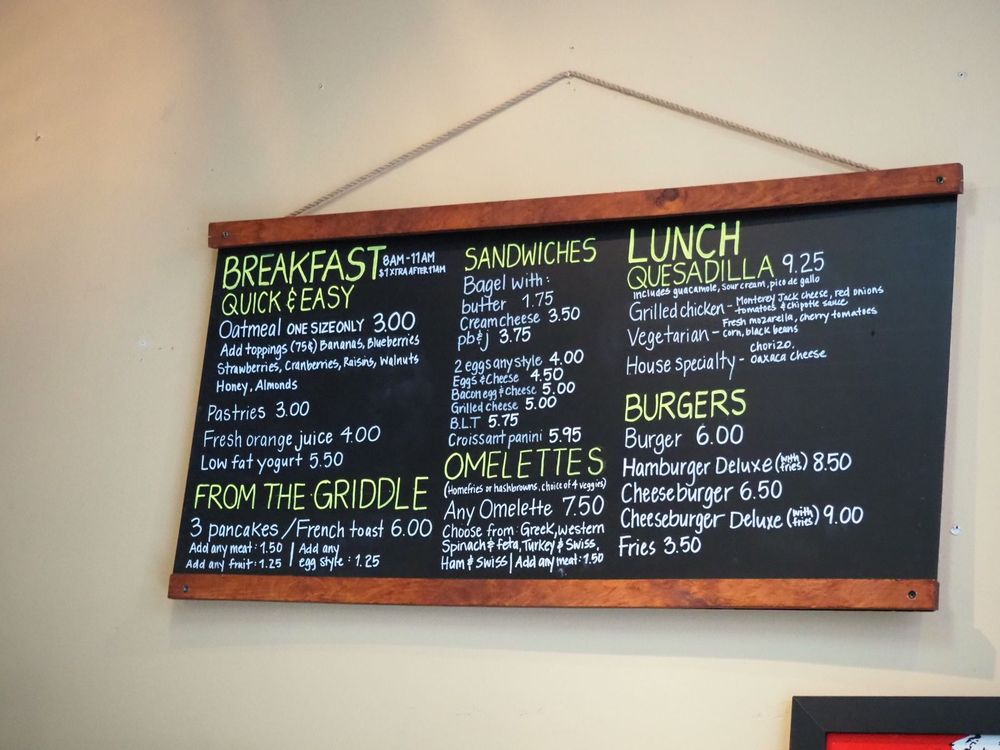 BREAKFAST 8AM-11AM
$1 XTRA AFTER 11AM
QUICK & EASY
Oatmeal ONE SIZE ONLY 3.00
Add toppings (75¢) Bananas, Blueberries
Strawberries, Cranberries, Raisins, Walnuts
Honey, Almonds
Pastries 3.00
Fresh orange juice 4.00
Low fat yogurt 5.50
FROM THE GRIDDLE
3 pancakes / French toast 6.00
Add any meat: 1.50 | Add any
Add any fruit: 1.25 | egg style: 1.25
SANDWICHES
Bagel with:
butter 1.75
Cream cheese 3.50
pb&j 3.75
2 eggs any style 4.00
Eggs & Cheese 4.50
Bacon egg & Cheese 5.00
Grilled cheese 5.00
B.L.T 5.75
Croissant panini 5.95
OMELETTES
(Homefries or hashbrowns, choice of 4 veggies)
Any Omelette 7.50
Choose from: Greek, western
Spinach & feta, Turkey & Swiss,
Ham & Swiss | Add any meat: 1.50
LUNCH
QUESADILLA 9.25
includes guacamole, sour cream, pico de gallo
Grilled chicken - Monterey Jack cheese, red onions
tomatoes & chipotle sauce
Vegetarian - Fresh mozarella, cherry tomatoes
corn, black beans
House specialty - chorizo,
oaxaca cheese
BURGERS
Burger 6.00
Hamburger Deluxe (with fries) 8.50
Cheeseburger 6.50
Cheeseburger Deluxe (with fries) 9.00
Fries 3.50